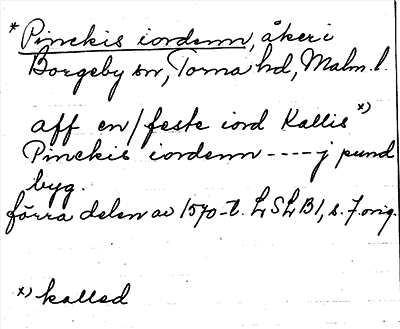 * Pinckis iordenn, åker i
Borgeby sn, Torna hd, Malm. l.
aff en / feste iord Kallis x)
Pinckis iordenn ---- j pund
byg.
förra delen av 1570-t. LSLB1, s. 7 orig.
x) kalled